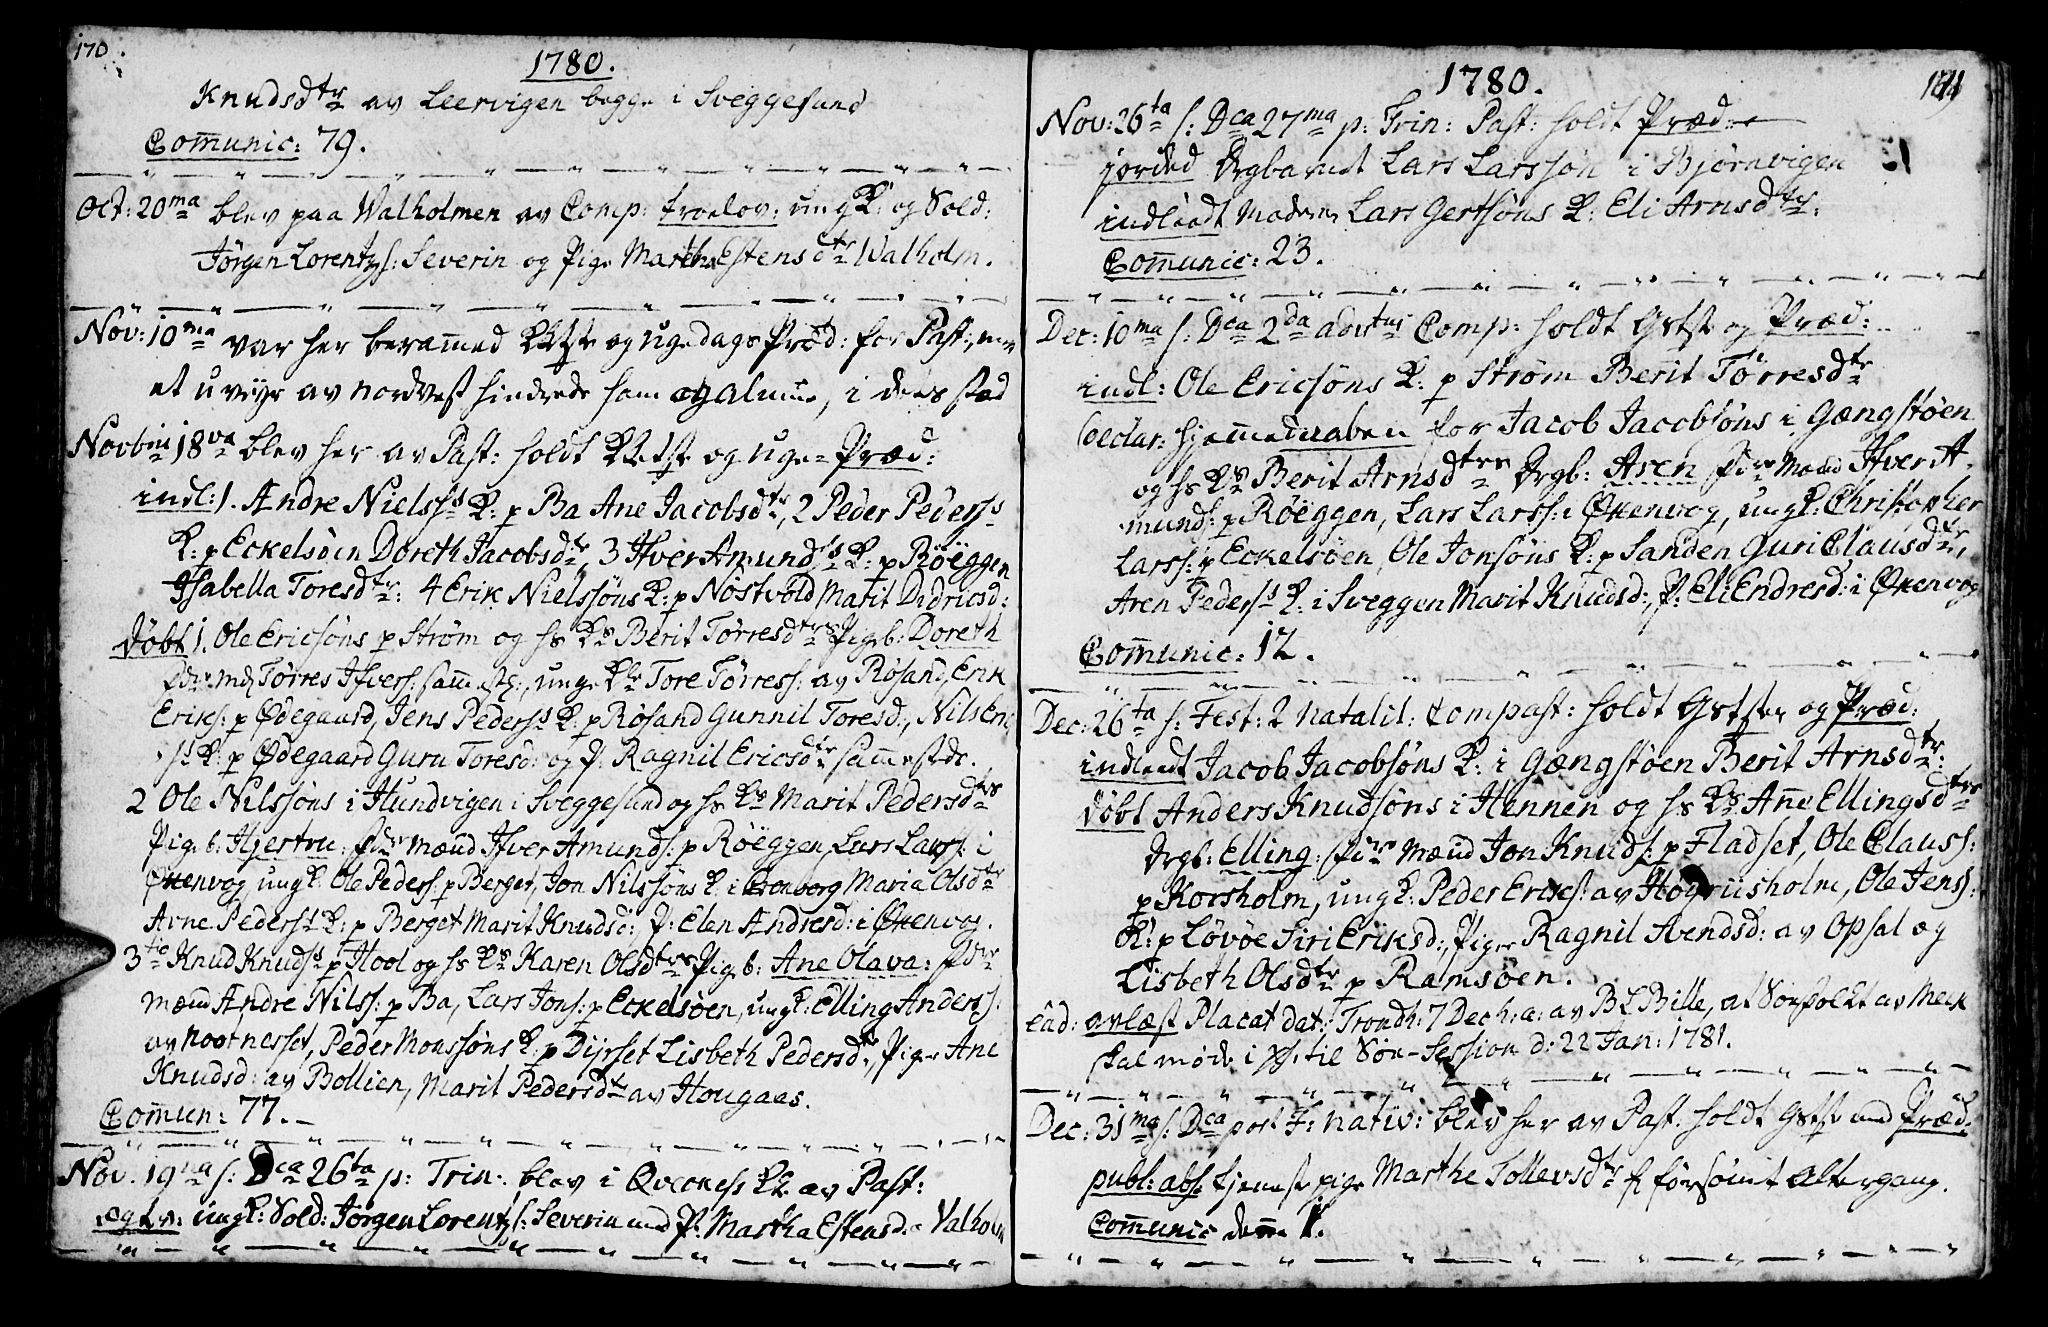 170
1780.
Knudsdtr av Leervigen begge i Sveggesund
Comunic: 79.
Oct: 20ma blev paa Walholmen av Comp: troelov: ungK: og Sold:
Jørgen Lorentzs: Severin og Pige Martha Estensdtr Walholm.
Nov: 10ma var her beramed og ugedags Præd: for Past:, men
et uveyr av nordvest hindrede ham, i dens sted
Novbris 18va blev her av Past: holdt og uge-Præd:
indl: 1. Andre Nielss K: p Ba Ane Jacobsdtr, 2 Peder Pederss
K: p Eckelsöen Doreth Jacobsdtr, 3 Ifver Amundss K: p Röeggen
Isabella Toresdtr: 4 Erik Nielssöns K: p Nöstvold Marit Didricsd:
döbt 1. Ole Ericsöns p Ström og hs Ks Berit Törresdtrs Pigeb: Doreth
Törres Ifvers: samests:, unge Kle Tore Törress: av Rösand, Erik
Eriks: p Ødegaard, Jens Pederss K: p Rösand Gunnil Toresd:, Nils Eric
ss K: p Ødegaard Guru Toresd: og P. Ragnil Ericsdtr sammestds.
2 Ole Nilssöns i Hundvigen i Sveggesund og hs Ks Marit Pedersdtrs
Pigeb: Hjertru: mænd Ifver Amunds: p Röeggen, Lars Larss: i
Ørenvog, ungK: Ole Peders: p Berget, Jon Nilssöns K: i Maria Olsdtr
Arne Pederss K: p Berget Marit Knudsd:, P: Elen Andresd: i Ørenvog.
3tie Knud Knudss p Hool og hs Ks Karen Olsdtrs Pigeb: Ane Olava:
mænd Andre Nilss: p Ba, Lars Jons: p Eckelsöen, ungK: Elling Anderss:
av nootnesset, Peder Monssöns K: p Dyrset Lisbeth Pedersdtr, Piger Ane
Knudsd: av Bollien, Marit Pedersdtr av Hougaas.
Comun: 77.
Nov: 19na s: Dca 26ta p: Trin: blev i Qverness K: av Past:
egtv: ungK: Sold: Jörgen Lorentzs: Severin med P: Martha Estensd: Valholm
1780.
171
Nov: 26ta s: Dca 27ma p: Trin: Past: holdt Præd:
jorded Drgbarnet Lars Larssøn i Bjørnvigen
indleedt Lars Gertsöns K: Eli Arnsdtr:
Comunic: 23.
Dec: 10ma s: Dca 2da adventus Comp: holdt Gstste og Præd:
indl: Ole Ericsöns K: p Ström Berit Törresdtr
declar: hjemmedaaben for Jacob Jacobsöns i Gængstöen
og hs Ks Berit Arnsdtrs Drgb: Aren mænd Ifver A.
munds: p Röeggen, Lars Larss: i Ørenvog, ungK: Christopher
Larss: p Eckelsöen, Ole Jonsöns K: p Sanden Guri Clausdtr,
Aren Pederss K: i Sveggen Marit Knudsd:, P: Eli Endresd: i Ørenvog
Comunic: 12.
Dec: 26ta s: Fest: 2 natalit: Compast: holdt Gststen og Præd:
indleedt Jacob Jacobsöns K: i Gængstöen Berit Arnsdtr:
döbt Anders Knudsöns i Hennen og hs Ks Anne Ellingsdtrs
Drgb: Elling: mænd Jon Knuds: p Fladset, Ole Clauss:
p Korsholm, ungK: Peder Eriks: av Ole Jenss:
K: p Lövöe Siri Eriksd:, Piger Ragnil Svendsd: av Opsal og
Lisbeth Olsdtr p Ramsöen.
ead: avlæst Placat dat: Trondh: 7 Dec h: a: av BL Bille, at Söefolkt av Meck
skal möde i til Söe-Session d: 22 Jan: 1781.
Dec: 31ma s: Dca post F: nativ: blev her av Past: holdt Gstste med Præd:
publ: abs: tjeneste pige Marthe Tollevsdtr forsömt Altergang.
Comunic denne 1.